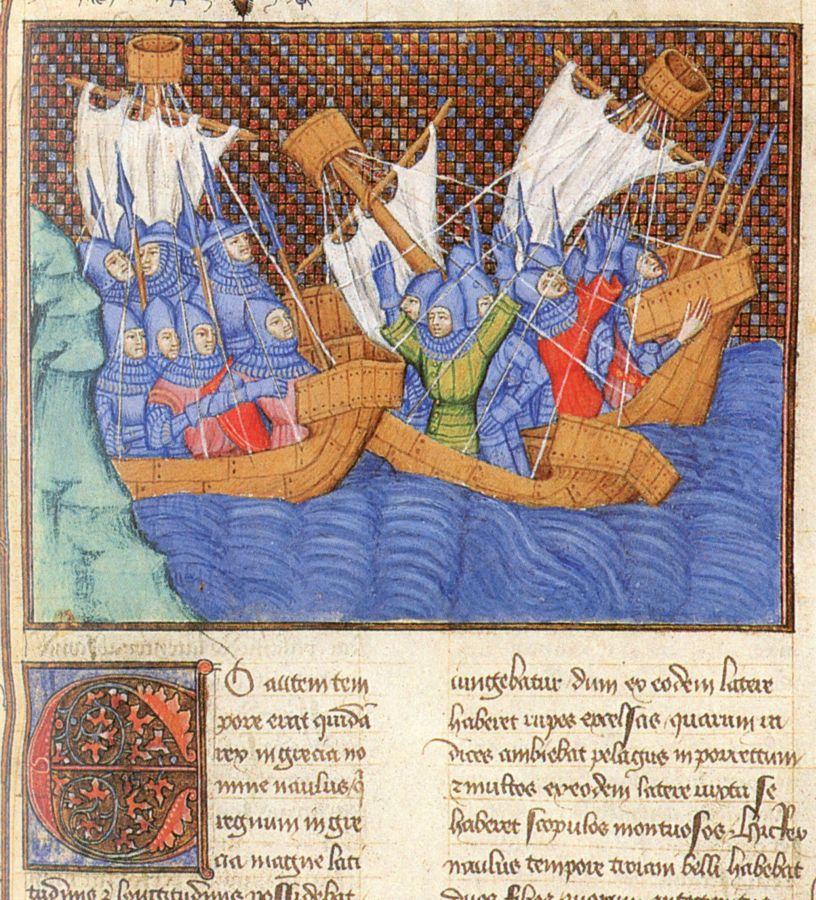 EO autem tem
pore erat quida
rex in grecia no
mine naulus, q
regnum in gre
cia magne lati
tudinis & longitudinis possidebat
iungebatur dum ex eodem latere
haberet rupes excelsas quarum ra
dices ambiebat pelagus inporrectum
& multos ex eodem latere iuxta se
haberet scopulos montuosos. Hic Rex
naulus tempore troiani belli habebat
duos filios quorum